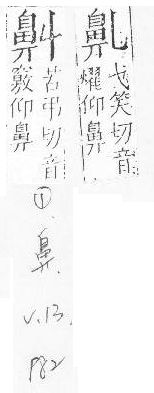 弋笑切音
燿仰鼻
苦弔切音
竅仰鼻
①
鼻.
V.13.
P82